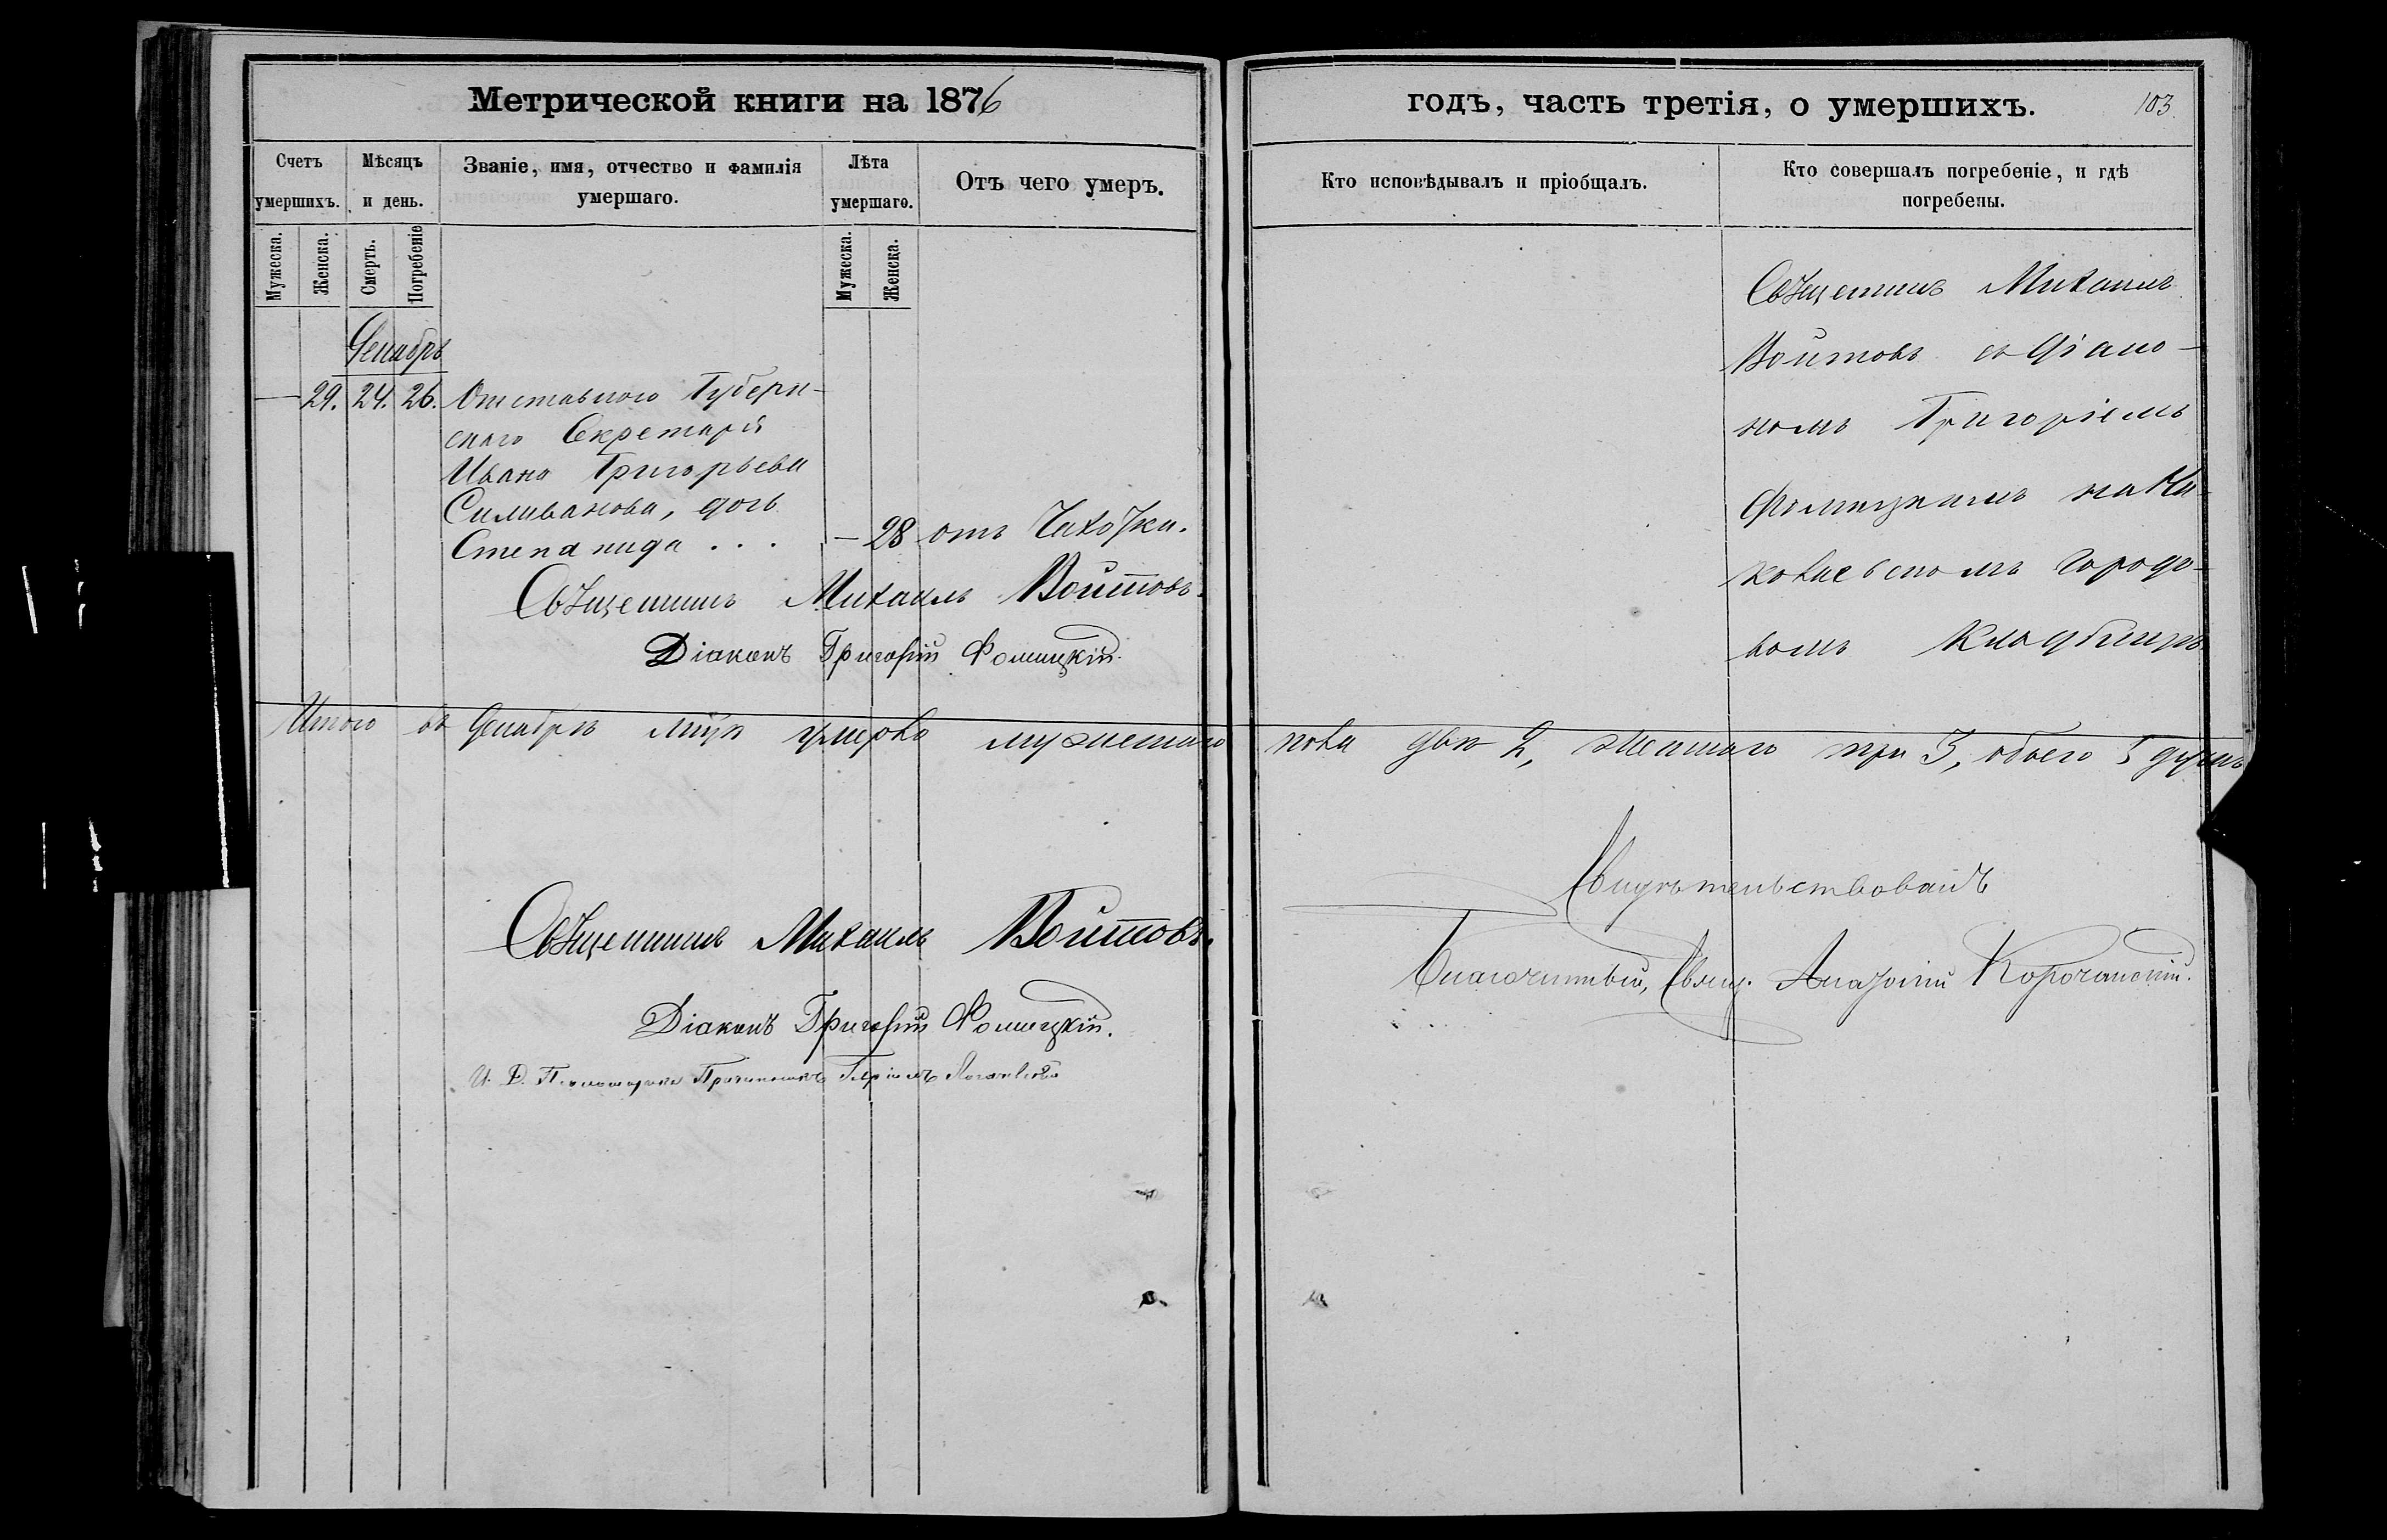 Метрической книги на 1876
годъ, часть третія, о умершихъ.
103.
Счетъ умершихъ.
Мѣсяцъ и день.
Званіе, имя, отчество и фамилія умершаго.
Лѣта умершаго.
Отъ чего умеръ.
Кто исповѣдывалъ и пріобщалъ.
Кто совершалъ погребеніе, и гдѣ погребены.
Мужеска.
Женска.
Смерть.
Погребеніе
Мужеска.
Женска.
Декабрь
— 29. 24. 26. Отставного Губерн-
скаго Секретаря
Ивана Григорьева
Силиванова, дочь
Степанида . . . — 28 отъ Чахотки.
Священникъ Михаилъ
Войтовъ съ Діако-
номъ Григоріемъ
Фомицкимъ на
городо-
вомъ Кладбищѣ
Священникъ Михаилъ Войтовъ.
Діаконъ Григорій Фомицкій.
Итого въ Декабрѣ м-цѣ умерло мужескаго пола два 2, женскаго три 3, обоего 5 душъ
Священникъ Михаилъ Войтовъ.
Діаконъ Григорій Фомицкій.
И. Д. Псаломщика
Свидѣтельствовалъ
Благочинный, Свящ. Корочанскій.